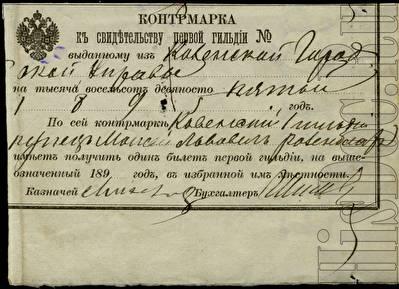 КОНТРМАРКА
къ свидѣтельству первой гильдіи №
выданному изъ Ковенской Город
ской Управы
на тысяча восемьсотъ девяносто пятый
1895 годъ.
По сей контрмаркѣ Ковенскій 1 гильдіи
купецъ
имѣетъ получить одинъ билетъ первой гильдіи, на выше-
означенный 189 годъ, въ избранной имъ мѣстности.
Казначей Бухгалтеръ